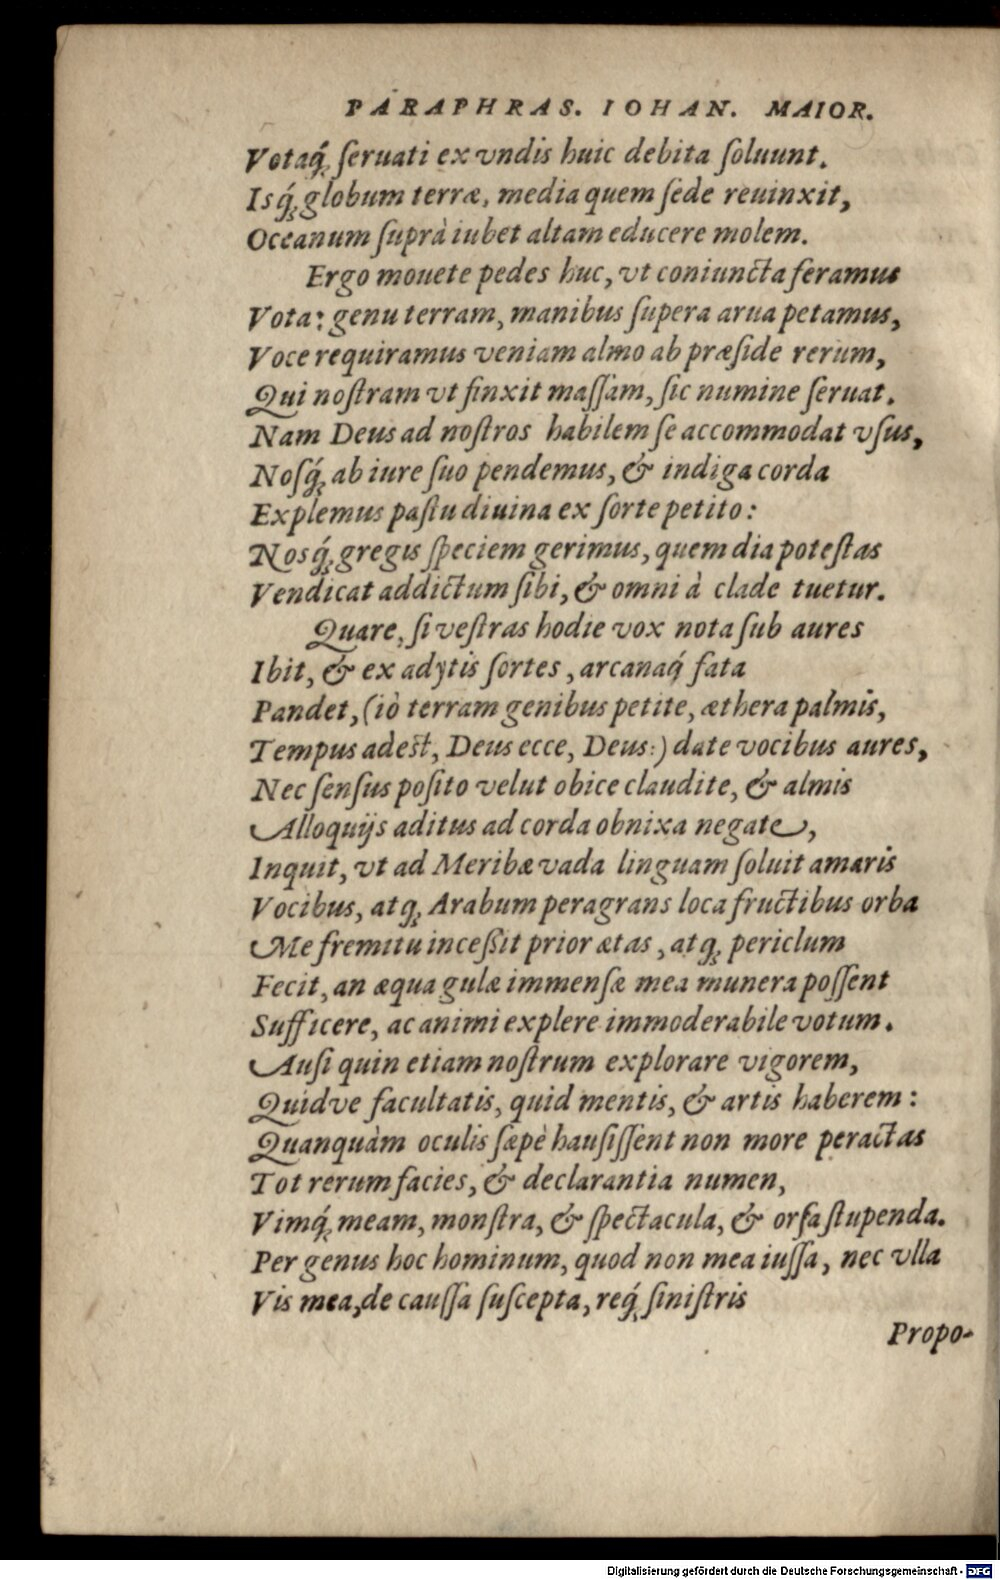 PARAPHRAS. IOHAN. MAIOR.
Votaq́; ſeruati ex vndis huic debita ſoluunt.
Isq́; globum terræ, media quem ſede reuinxit,
Oceanum ſuprà iubet altam educere molem.
Ergo mouete pedes huc, vt coniuncta feramus
Vota: genu terram, manibus ſupera arua petamus,
Voce requiramus veniam almo ab præſide rerum,
Qui noſtram vt finxit maſſam, ſic numine ſeruat.
Nam Deus ad noſtros habilem ſe accommodat vſus,
Noſq́; ab iure ſuo pendemus, & indiga corda
Explemus paſtu diuina ex ſorte petito:
Nosq́; gregis ſpeciem gerimus, quem dia poteſtas
Vendicat addictum ſibi, & omni à clade tuetur.
Quare, ſi veſtras hodie vox nota ſub aures
Ibit, & ex adytis ſortes, arcanaq́ fata
Pandet, (iò terram genibus petite, æthera palmis,
Tempus adest, Deus ecce, Deus:) date vocibus aures,
Nec ſenſus poſito velut obice claudite, & almis
Alloquijs aditus ad corda obnixa negate,
Inquit, vt ad Meribæ vada linguam ſoluit amaris
Vocibus, atq; Arabum peragrans loca fructibus orba
Me fremitu inceßit prior ætas, atq; periclum
Fecit, an æqua gulæ immenſæ mea munera poſſent
Sufficere, ac animi explere immoderabile votum.
Auſi quin etiam noſtrum explorare vigorem,
Quidve facultatis, quid mentis, & artis haberem:
Quanquàm oculis ſæpè hauſiſſent non more peractas
Tot rerum facies, & declarantia numen,
Vimq́; meam, monſtra, & ſpectacula, & orſa ſtupenda.
Per genus hoc hominum, quod non mea iuſſa, nec vlla
Vis mea, de cauſſa ſuſcepta, req́; ſiniſtris
Propo-
Digitalisierung gefördert durch die Deutsche Forschungsgemeinschaft - DFG